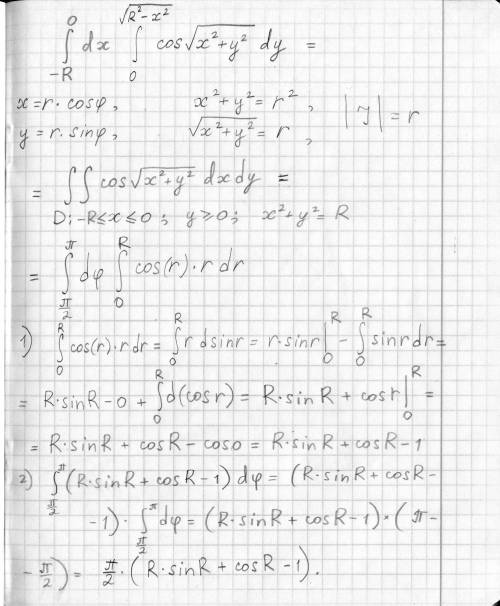 ∫_{-R}^{0} dx ∫_{0}^{√(R²-x²)} cos√(x²+y²) dy =
x = r·cosφ, x²+y² = r², |J| = r
y = r·sinφ, √(x²+y²) = r,
= ∬ cos√(x²+y²) dxdy =
D: -R≤x≤0; y≥0; x²+y²=R
= ∫_{π/2}^{π} dφ ∫_{0}^{R} cos(r)·r dr
1) ∫_{0}^{R} cos(r)·r dr = ∫_{0}^{R} r dsinr = r·sinr|_{0}^{R} - ∫_{0}^{R} sinr dr =
= R·sinR-0 + ∫_{0}^{R} d(cosr) = R·sinR + cosr|_{0}^{R} =
= R·sinR + cosR - cos0 = R·sinR + cosR-1
2) ∫_{π/2}^{π} (R·sinR + cosR-1) dφ = (R·sinR + cosR-
-1)· ∫_{π/2}^{π} dφ = (R·sinR + cosR-1)·(π-
-π/2) = π/2·(R·sinR + cosR-1).